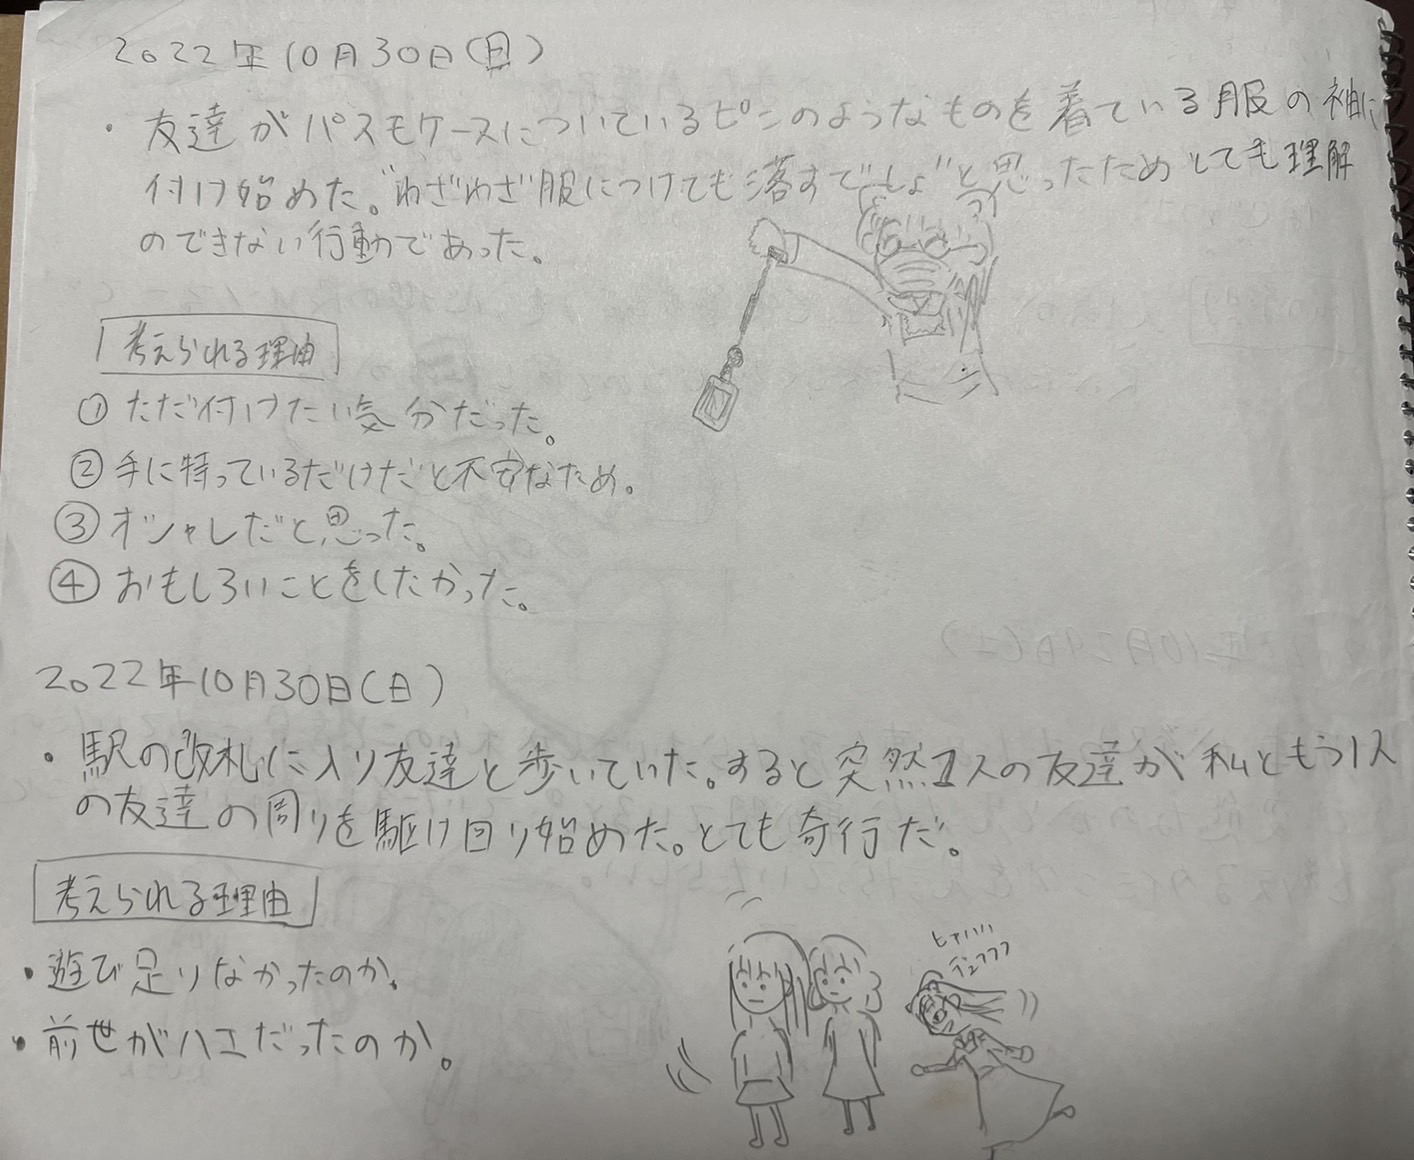 2022年10月30日(日)
・友達がパスモケースについているピンのようなものを着ている服の袖に
付け始めた。"わざわざ服につけても落すでしょ"と思ったためとても理解
のできない行動であった。
考えられる理由
① ただ付けたい気分だった。
② 手に持っているだけだと不安なため。
③ オシャレだと思った。
④ おもしろいことをしたかった。
2022年10月30日(日)
・駅の改札に入り友達と歩いていた。すると突然1人の友達が私ともう1人
の友達の周りを駆け回り始めた。とても奇行だ。
考えられる理由
・遊び足りなかったのか。
・前世がハエだったのか。
デュフフフ